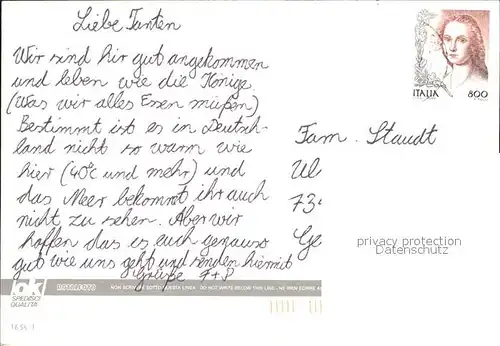 Liebe Tanten
Wir sind hir gut angekommen
und leben wie die Könige
(Was wir alles Essen müßen)
Bestimmt ist es in Deutsch-
land nicht so warm wie
hier (40°C und mehr) und
das Meer bekommt ihr auch
nicht zu sehen. Aber wir
hoffen das es euch genauso
gut wie uns geht und senden hiermit
Grüße F+P
ITALIA 800
Fam. Staudt
Ul
734
Ge
privacy protection
Datenschutz
ak
SPEDISCI
QUALITÀ
ROTALFOTO
NON SCRIVERE SOTTO QUESTA LINEA - DO NOT WRITE BELOW THIS LINE - NE RIEN ECRIRE